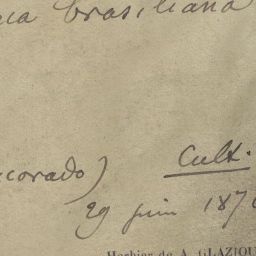 brasiliana
corado) Cult.
29 juin 187
Herbier de A. GLAZIOU